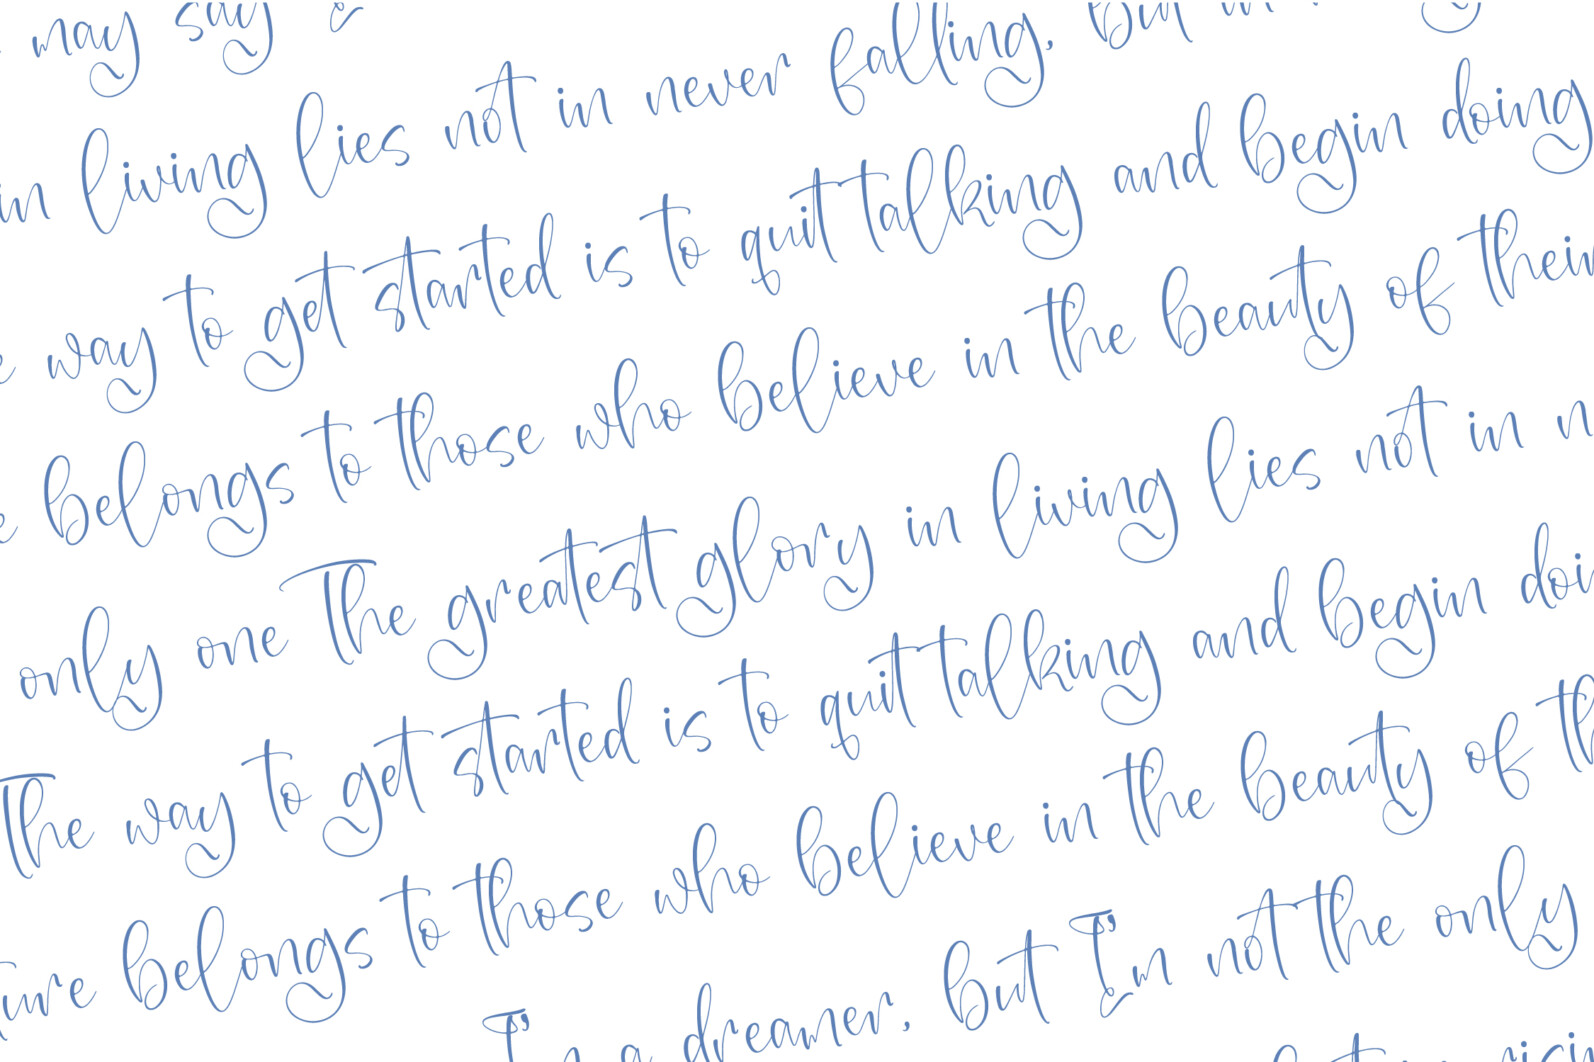 may say
in living lies not in never falling, but in
e way to get started is to quit talking and begin doing
e belongs to those who believe in the beauty of their
only one The greatest glory in living lies not in n
The way to get started is to quit talking and begin doi
ure belongs to those who believe in the beauty of th
I'm a dreamer, but I'm not the only